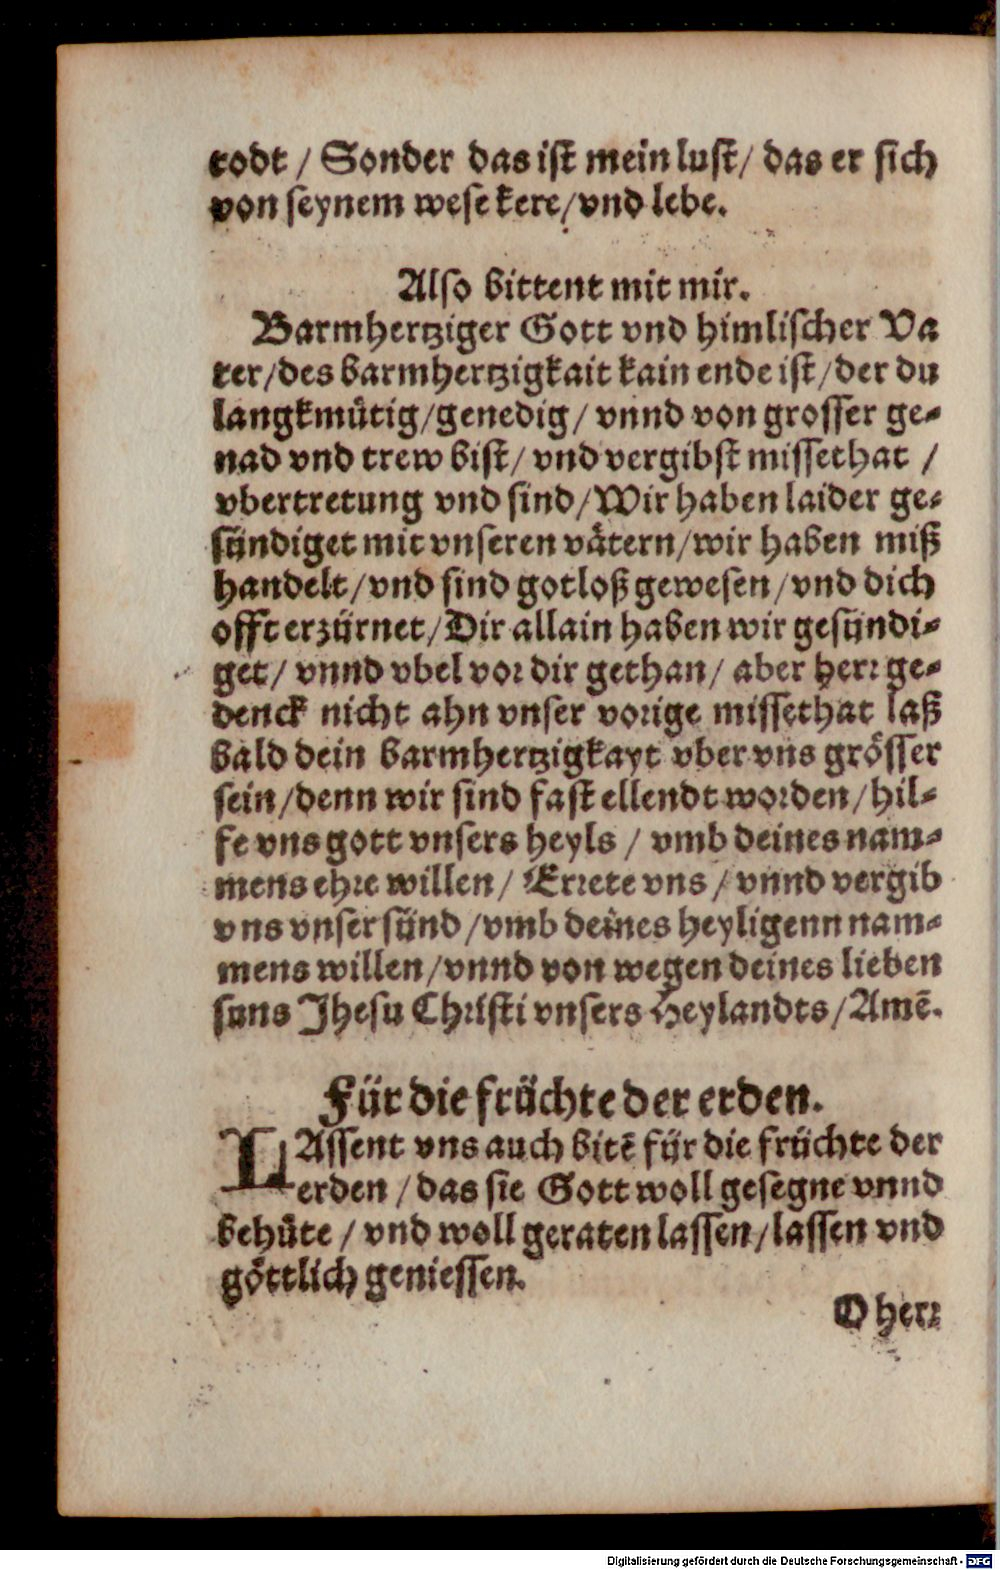 todt / Sonder das ist mein lust / das er sich
von seynem wese kere / vnd lebe.
Also bittent mit mir.
Barmhertziger Gott vnd himlischer Va
ter / des barmhertzigkait kain ende ist / der du
langkmuͤtig / genedig / vnnd von grosser ge⸗
nad vnd trew bist / vnd vergibst missethat /
vbertretung vnd sind / Wir haben laider ge⸗
sündiget mit vnseren vaͤtern / wir haben miß
handelt / vnd sind gotloß gewesen / vnd dich
offt erzürnet / Dir allain haben wir gesündi⸗
get / vnnd vbel vor dir gethan / aber herr ge⸗
denck nicht ahn vnser vorige missethat laß
bald dein barmhertzigkayt vber vns groͤsser
sein / denn wir sind fast ellendt worden / hil⸗
fe vns gott vnsers heyls / vmb deines nam⸗
mens ehre willen / Errete vns / vnnd vergib
vns vnser sünd / vmb deines heyligenn nam⸗
mens willen / vnnd von wegen deines lieben
suns Jhesu Christi vnsers Heylandts / Amē.
Für die früchte der erden.
LAssent vns auch bitē für die früchte der
erden / das sie Gott woll gesegne vnnd
behuͤte / vnd woll geraten lassen / lassen vnd
goͤttlich geniessen.
O herr
Digitalisierung gefördert durch die Deutsche Forschungsgemeinschaft - DFG